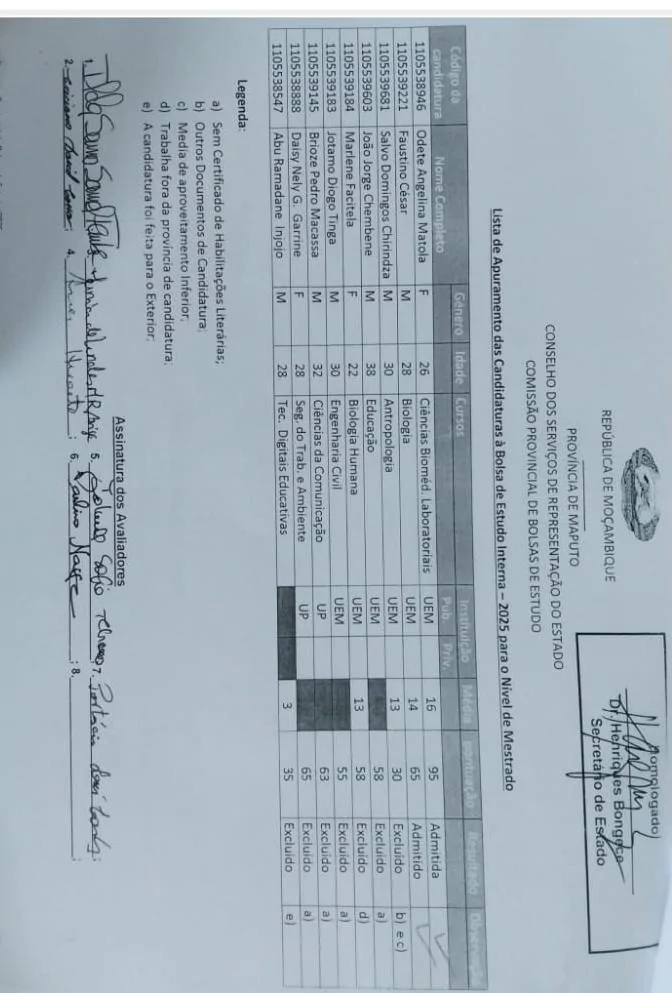 REPÚBLICA DE MOÇAMBIQUE
PROVÍNCIA DE MAPUTO
CONSELHO DOS SERVIÇOS DE REPRESENTAÇÃO DO ESTADO
COMISSÃO PROVINCIAL DE BOLSAS DE ESTUDO
Homologado
Dr. Henriques Bongece
Secretário de Estado
Lista de Apuramento das Candidaturas à Bolsa de Estudo Interna – 2025 para o Nível de Mestrado
Código da candidatura Nome Completo Género Idade Cursos Instituição Pub. Priv. Média pontuação Resultado
1105538946 Odete Angelina Matola F 26 Ciências Bioméd. Laboratoriais UEM 16 95 Admitida
1105539221 Faustino César M 28 Biologia UEM 14 65 Admitido
1105539681 Salvo Domingos Chirindza M 30 Antropologia UEM 13 30 Excluido b) e c)
1105539603 João Jorge Chembene M 38 Educação UEM 58 Excluido a)
1105539184 Marlene Facitela F 22 Biologia Humana UEM 13 58 Excluido d)
1105539183 Jotamo Diogo Tinga M 30 Engenharia Civil UEM 55 Excluido a)
1105539145 Brioze Pedro Macassa M 32 Ciências da Comunicação UP 63 Excluido a)
1105538888 Daisy Nely G. Garrine F 28 Seg. do Trab. e Ambiente UP 65 Excluido a)
1105538547 Abu Ramadane Injojo M 28 Tec. Digitais Educativas 3 35 Excluido e)
Legenda:
a) Sem Certificado de Habilitações Literárias;
b) Outros Documentos de Candidatura;
c) Media de aproveitamento Inferior;
d) Trabalha fora da província de candidatura;
e) A candidatura foi feita para o Exterior;
Assinatura dos Avaliadores
1. 5. 7.
2. 4. ; 6. ; 8.